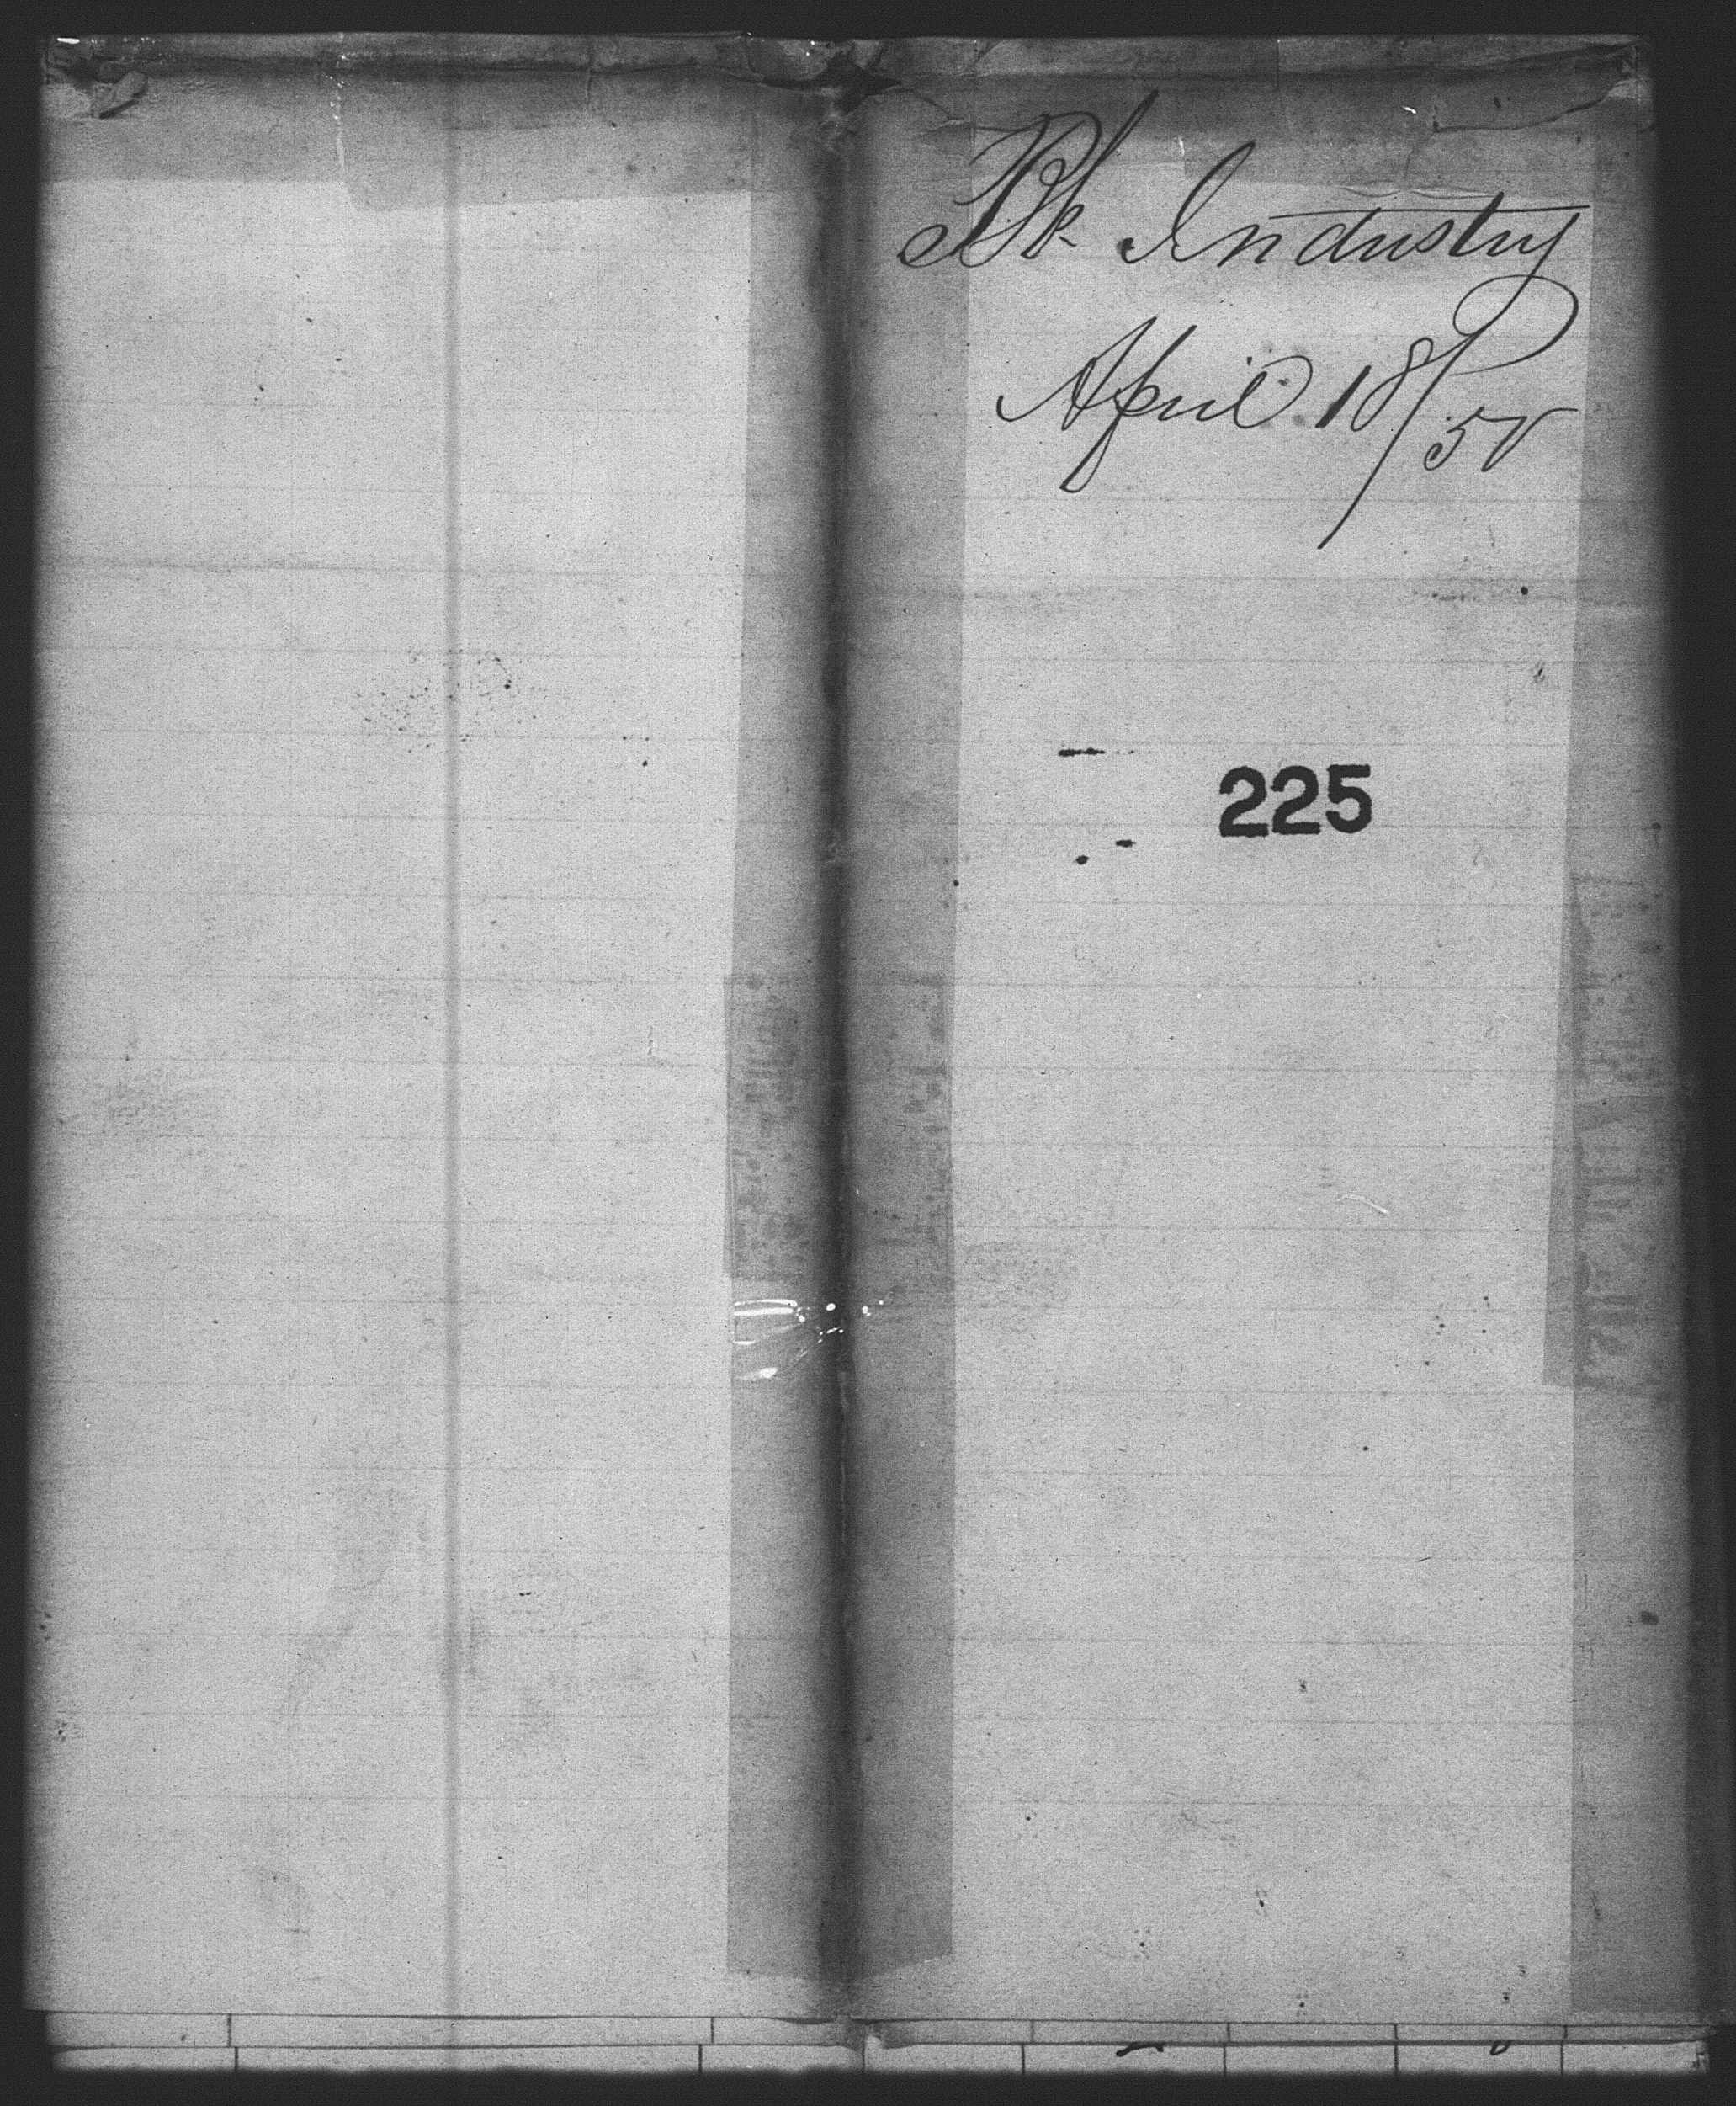 Bk Industry
April 18/58
225